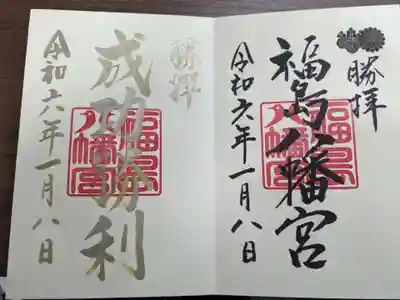 勝拝
福島八幡宮
令和六年一月八日
福島八幡宮
勝拝
成功勝利
令和六年一月八日
福島八幡宮